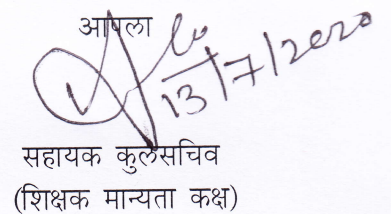 आपला
13/7/2020
सहायक कुलसचिव
(शिक्षक मान्यता कक्ष)